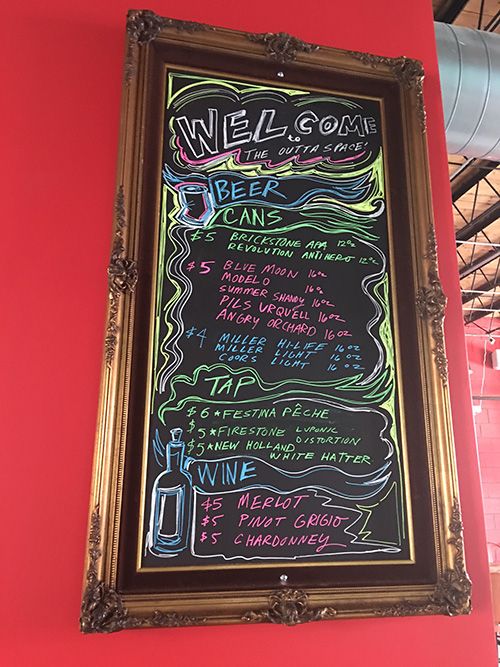 WELCOME
to
THE OUTTA SPACE!
BEER
CANS
$5 BRICKSTONE APA 12oz
REVOLUTION ANTIHERO 12oz
$5 BLUE MOON 16oz
MODELO 16oz
SUMMER SHANDY 16oz
PILS URQUELL 16oz
ANGRY ORCHARD 16oz
$4 MILLER HI-LIFE 16oz
MILLER LIGHT 16oz
COORS LIGHT 16oz
TAP
$6 * FESTINA PÊCHE
$5 * FIRESTONE LUPONIC
DISTORTION
$5 * NEW HOLLAND
WHITE HATTER
WINE
$5 MERLOT
$5 PINOT GRIGIO
$5 CHARDONNEY